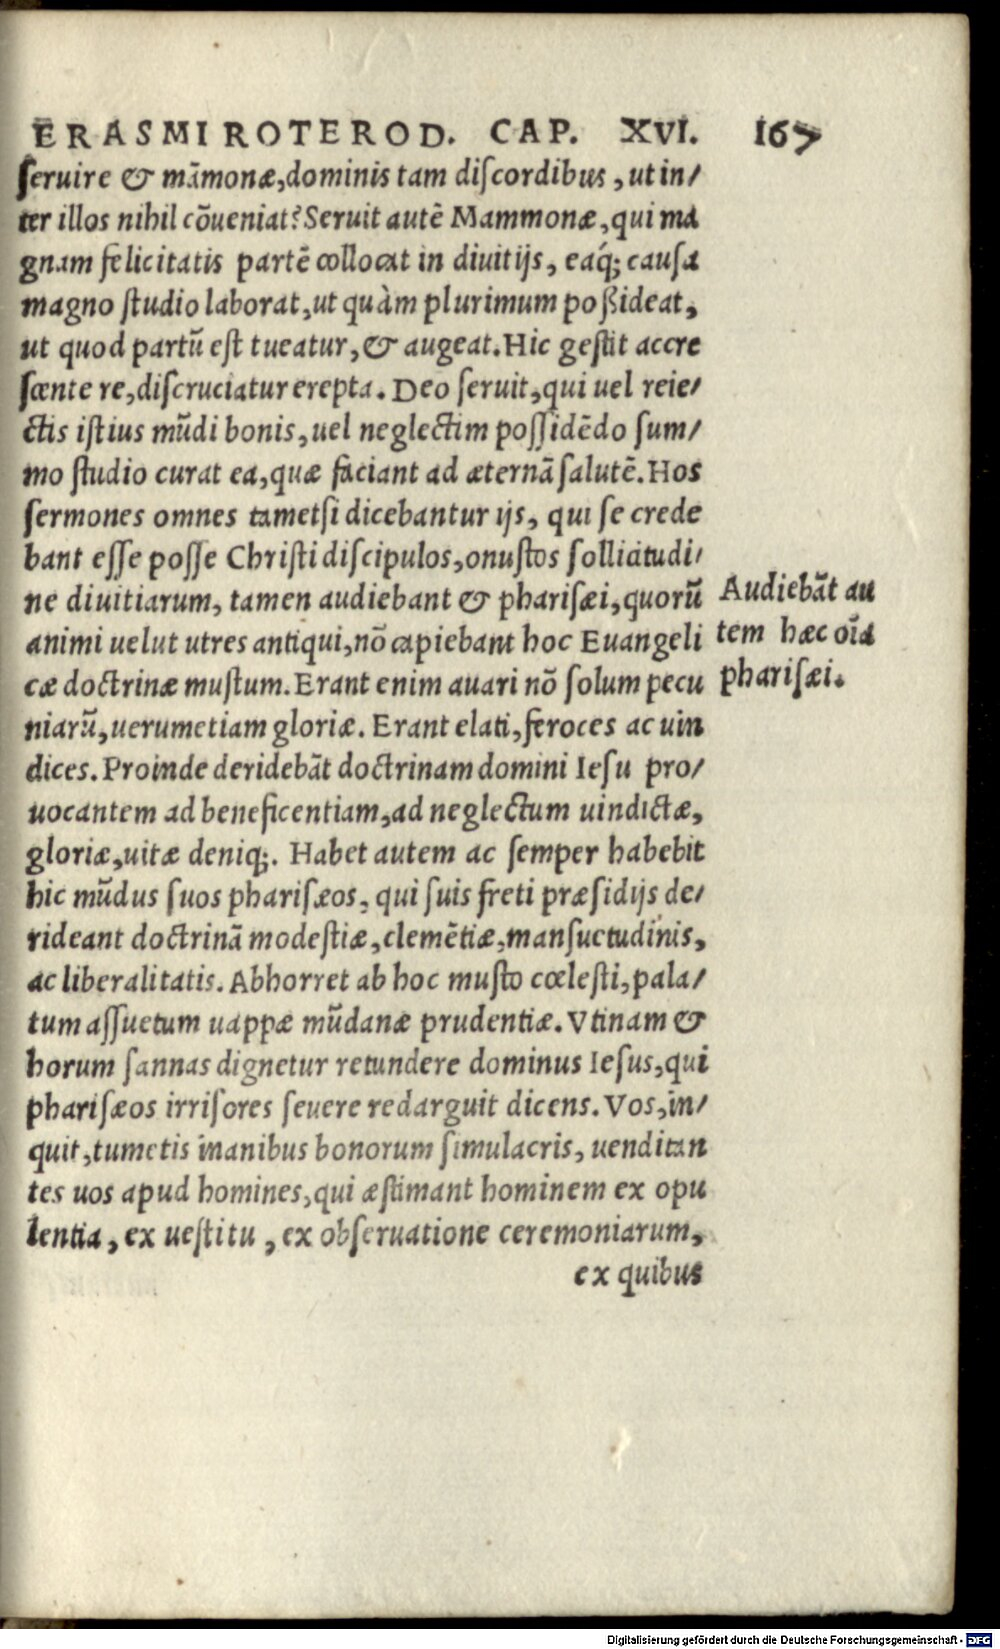 ERASMI ROTEROD. CAP. XVI. 167
ſeruire & mãmonæ, dominis tam diſcordibus, ut in/
ter illos nihil cõueniat? Seruit autẽ Mammonæ, qui ma
gnam felicitatis partẽ collocat in diuitijs, eaq́; cauſa
magno ſtudio laborat, ut quàm plurimum poßideat,
ut quod partũ eſt tueatur, & augeat. Hic geſtit accre
ſcente re, diſcruciatur erepta. Deo ſeruit, qui uel reie/
ctis iſtius mũdi bonis, uel neglectim poſſidẽdo ſum/
mo ſtudio curat ea, quæ faciant ad æternã ſalutẽ. Hos
ſermones omnes tametſi dicebantur ijs, qui ſe crede
bant eſſe poſſe Chriſti diſcipulos, onuſtos ſollicitudi/
ne diuitiarum, tamen audiebant & phariſæi, quorũ
animi uelut utres antiqui, nõ capiebant hoc Euangeli
cæ doctrinæ muſtum. Erant enim auari nõ ſolum pecu
niarũ, uerumetiam gloriæ. Erant elati, feroces ac uin
dices. Proinde deridebãt doctrinam domini Ieſu pro/
uocantem ad beneficentiam, ad neglectum uindictæ,
gloriæ, uitæ deniq;. Habet autem ac ſemper habebit
hic mũdus ſuos phariſæos, qui ſuis freti præſidijs de/
rideant doctrinã modeſtiæ, clemẽtiæ, manſuetudinis,
ac liberalitatis. Abhorret ab hoc muſto cœleſti, pala/
tum aſſuetum uappæ mũdanæ prudentiæ. Vtinam &
horum ſannas dignetur retundere dominus Ieſus, qui
phariſæos irriſores ſeuere redarguit dicens. Vos, in/
quit, tumetis inanibus bonorum ſimulacris, uenditan
tes uos apud homines, qui æſtimant hominem ex opu
lentia, ex ueſtitu, ex obſeruatione ceremoniarum,
ex quibus
Audiebãt au
tem hæc oĩa
phariſæi.
Digitalisierung gefördert durch die Deutsche Forschungsgemeinschaft - DFG